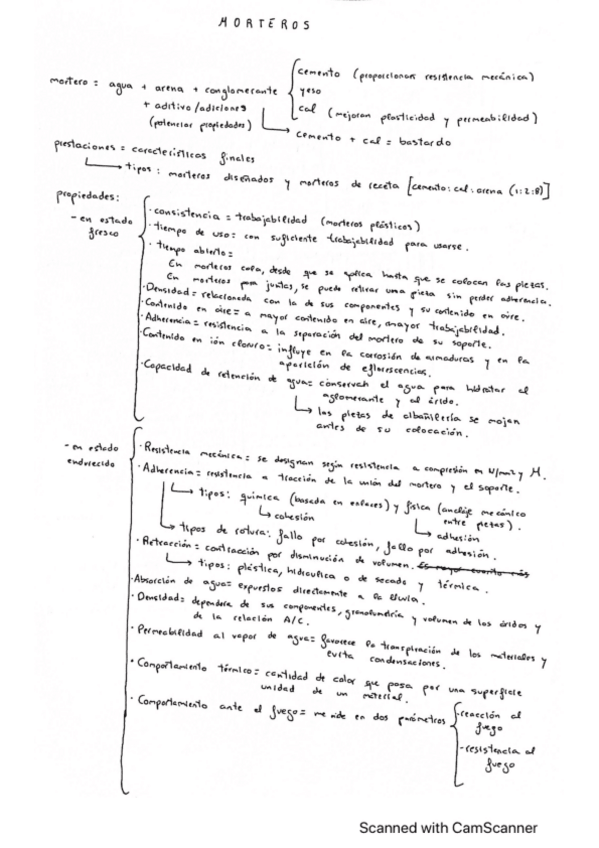 MORTEROS
mortero = agua + arena + conglomerante
+ aditivo/adiciones
(potenciar propiedades)
cemento (proporcionan resistencia mecánica)
yeso
cal (mejoran plasticidad y permeabilidad)
cemento + cal = bastardo
prestaciones = características finales
tipos: morteros diseñados y morteros de receta [cemento:cal:arena (1:2:8)]
propiedades:
- en estado
fresco
· consistencia = trabajabilidad (morteros plásticos)
· tiempo de uso: con suficiente trabajabilidad para usarse.
· tiempo abierto =
En morteros cola, desde que se aplica hasta que se colocan las piezas.
En morteros para juntas, se puede retirar una pieza sin perder adherencia.
· Densidad = relacionada con la de sus componentes y su contenido en aire.
· Contenido en aire = a mayor contenido en aire, mayor trabajabilidad.
· Adherencia = resistencia a la separación del mortero de su soporte.
· Contenido en ión cloruro = influye en la corrosión de armaduras y en la
aparición de eflorescencias.
· Capacidad de retención de agua = conservan el agua para hidratar al
aglomerante y al árido.
las piezas de albañilería se mojan
antes de su colocación.
- en estado
endurecido
· Resistencia mecánica = se designan según resistencia a compresión en N/mm2 y M.
· Adherencia = resistencia a tracción de la unión del mortero y el soporte.
tipos: química (basada en enlaces) y física (anclaje mecánico
entre piezas).
cohesión
adhesión
tipos de rotura: fallo por cohesión, fallo por adhesión.
· Retracción = contracción por disminución de volumen.
tipos: plástica, hidráulica o de secado y térmica.
· Absorción de agua = expuestos directamente a la lluvia.
· Densidad = dependerá de sus componentes, granulometría y volumen de los áridos y
de la relación A/C.
· Permeabilidad al vapor de agua = favorece la transpiración de los materiales y
evita condensaciones.
· Comportamiento térmico = cantidad de calor que pasa por una superficie
unidad de un material.
· Comportamiento ante el fuego = me mide en dos parámetros
- reacción al
fuego
- resistencia al
fuego
Scanned with CamScanner